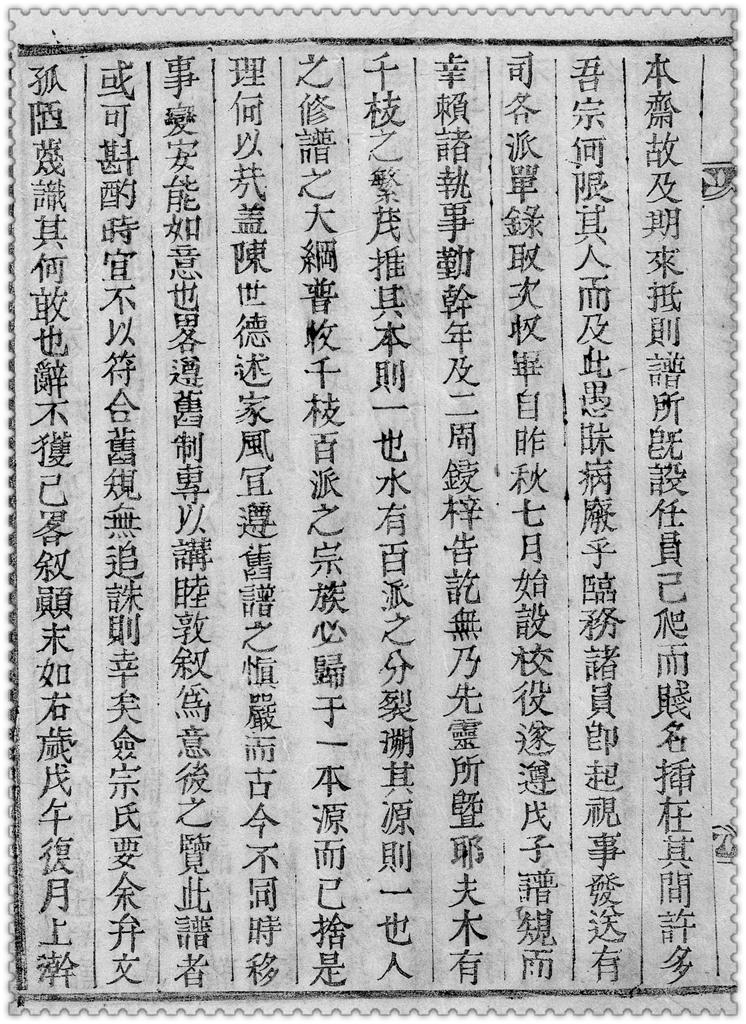 本齋故及期來抵則譜所旣設任員已爬而賤名揷在其間許多
吾宗何限其人而及此愚昧病廢乎臨務諸員卽起視事發送有
司各派單錄取次收畢自昨秋七月始設校役遂遵戊子譜規而
幸賴諸執事勤幹年及二周鋟梓告訖無乃先靈所曁耶夫木有
千枝之繁茂推其本則一也水有百派之分裂溯其源則一也人
之修譜之大綱普收千枝百派之宗族必歸于一本源而已捨是
理何以㢤盖陳世德述家風冝遵舊譜之愼嚴而古今不同時移
事變安能如意也畧遵舊制專以講睦敦叙爲意後之覽此譜者
或可斟酌時宜不以符合舊規無追誅則幸矣僉宗氏要余弁文
孤陋蔑識其何敢也辭不獲已畧叙顚末如右歲戊午復月上澣